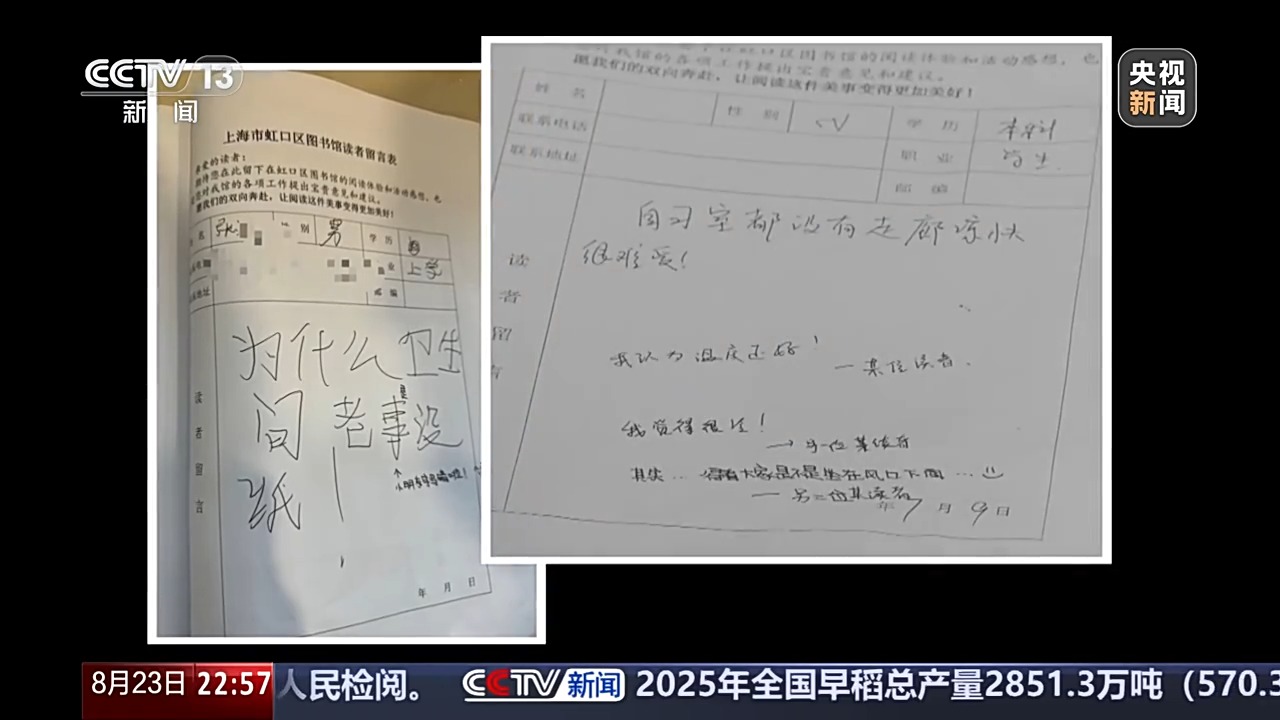 CCTV 13
新闻
央视
新闻
上海市虹口区图书馆读者留言表
亲爱的读者：
期待您在此留下在虹口区图书馆的阅读体验和活动感想，也
您对我馆的各项工作提出宝贵意见和建议。
愿我们的双向奔赴，让阅读这件美事变得更加美好！
名 张 别 男 学历
业 上学
地址 编
为什么卫生
间老事没
纸
读
者
留
言
年 月 日
在虹口区图书馆的阅读体验和活动感想，也
我馆的各项工作提出宝贵意见和建议。
愿我们的双向奔赴，让阅读这件美事变得更加美好！
姓名 性别 学历 本科
联系电话 职业 学生
联系地址 邮编
自习室都没有走廊凉快
很难受！
读
者
留
言
我认为温度还好！
—某位读者.
我觉得很冷！
→另一位某读者
其实… 得看大家是不是坐在风口下面…
— 另二位某读者
年7月9日
8月23日 22:57 人民检阅。 CCTV新闻 2025年全国早稻总产量2851.3万吨（570.3